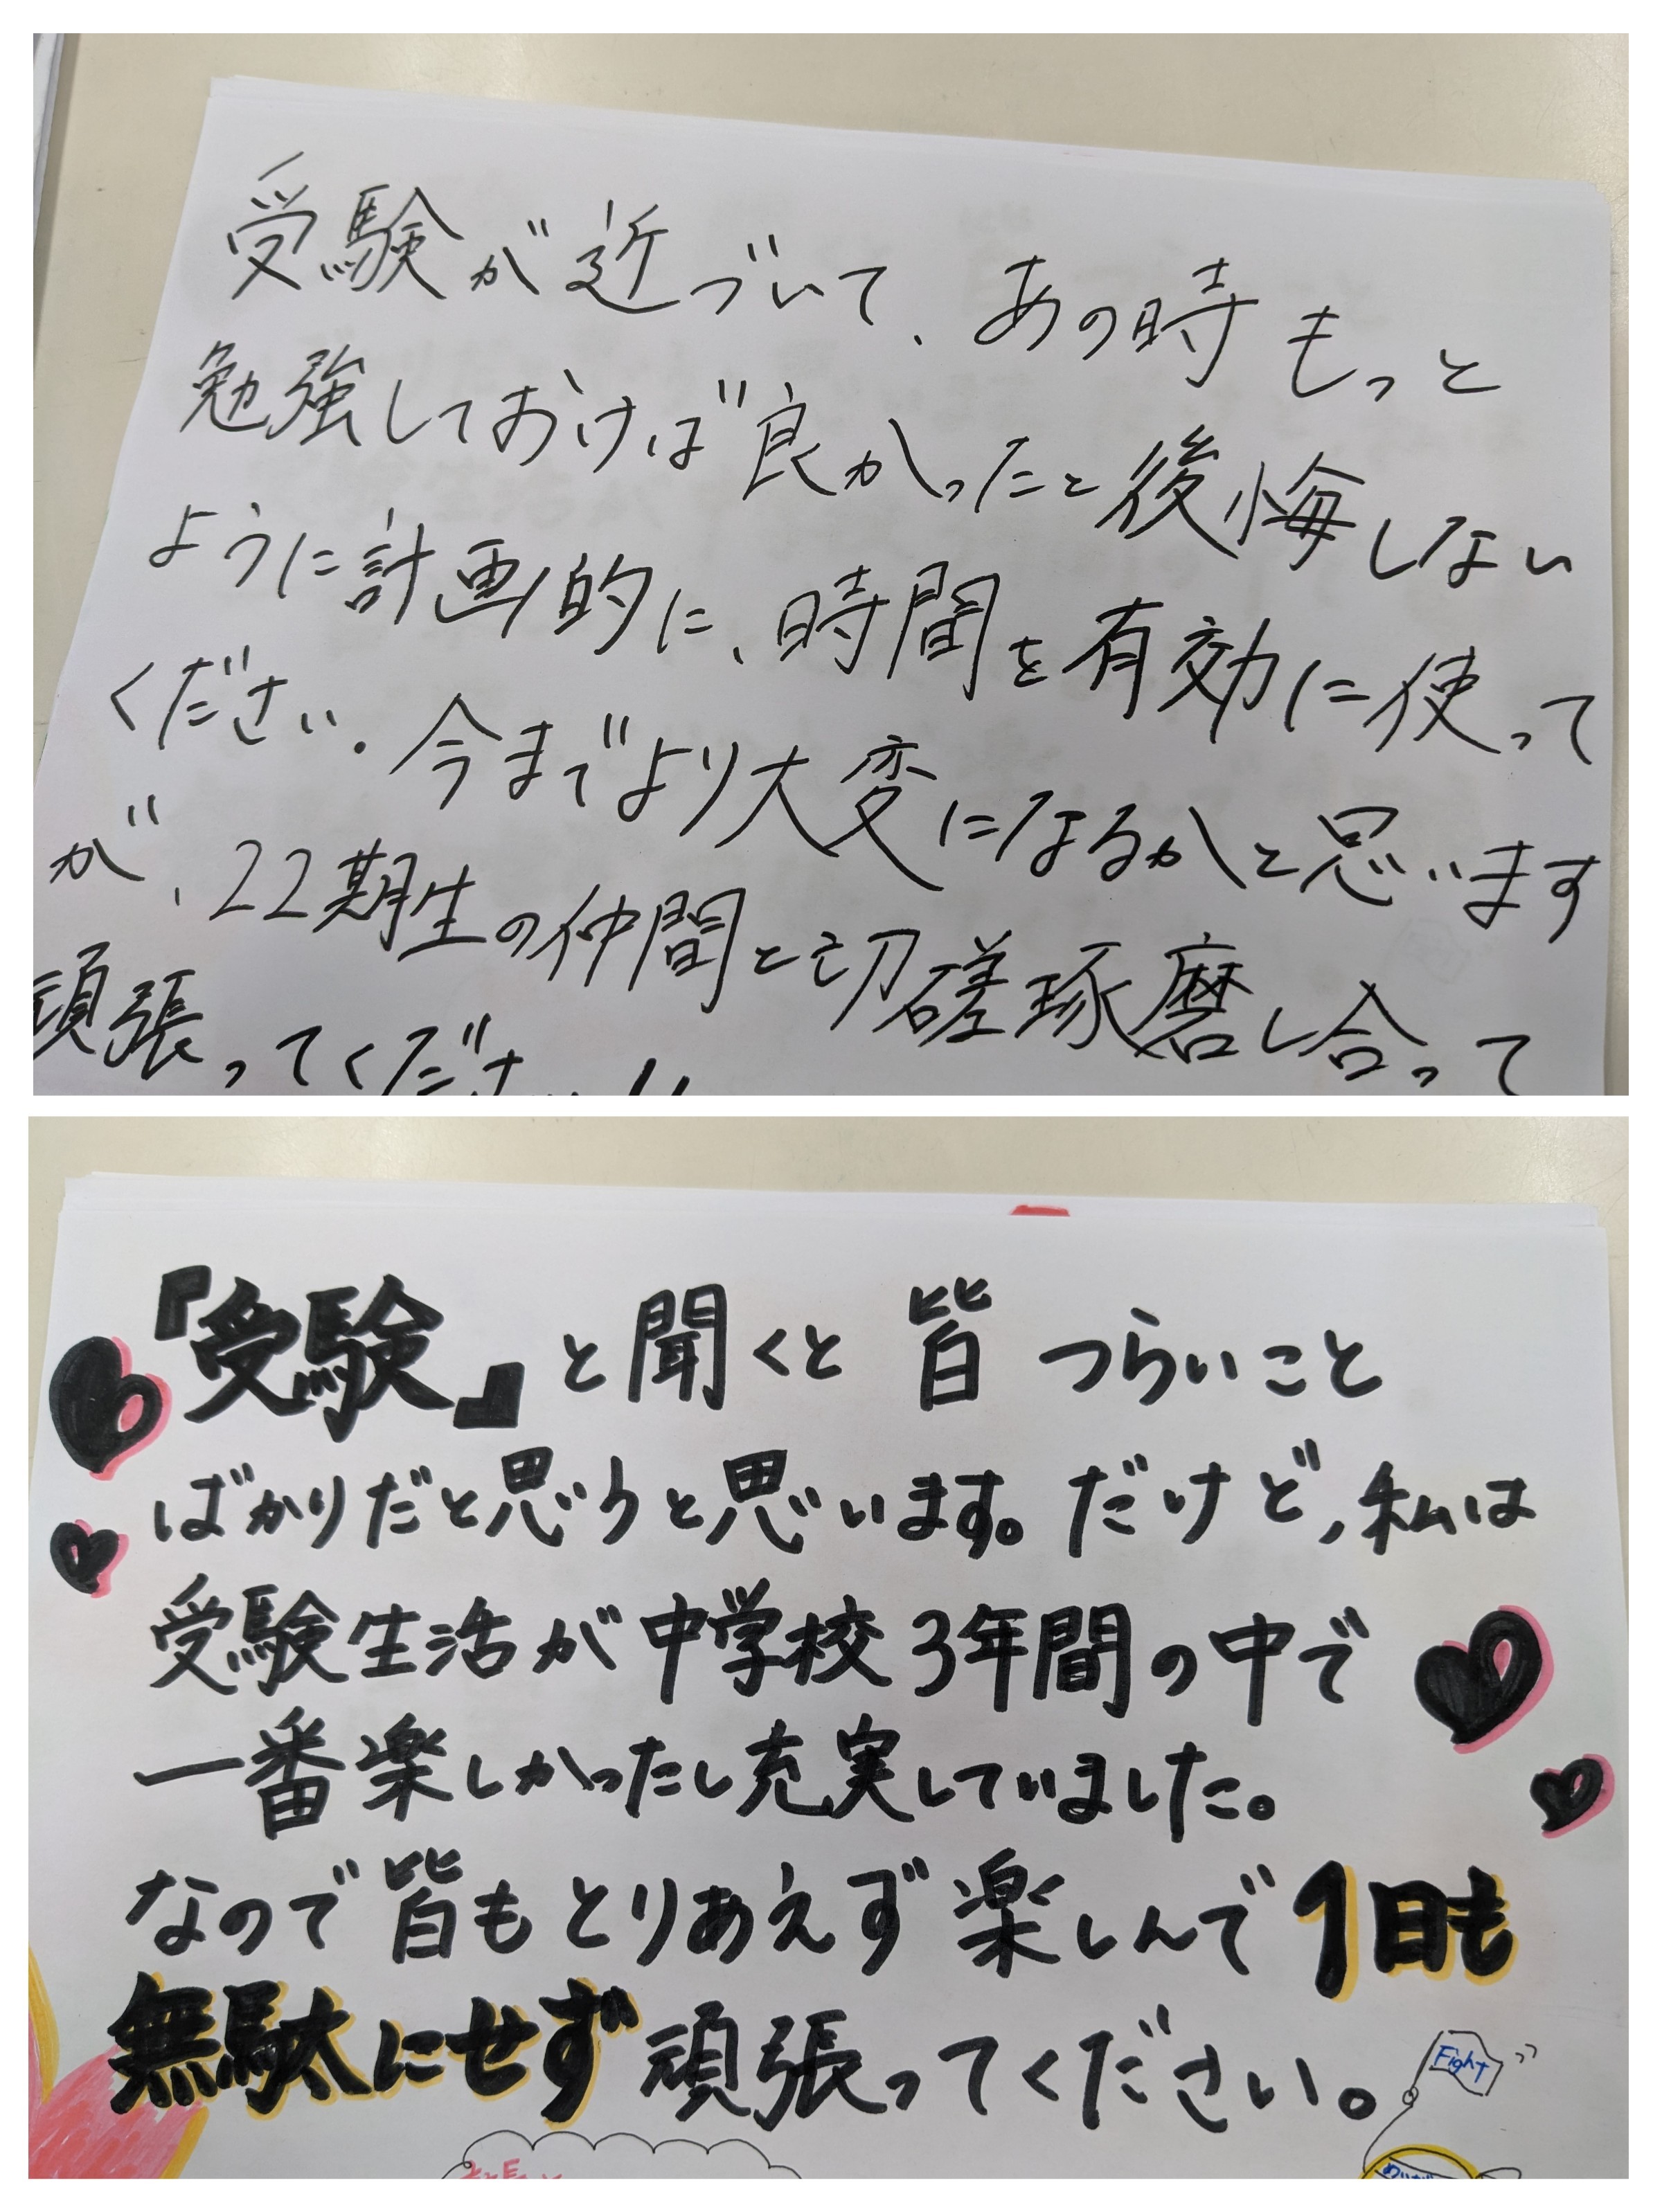 受験が近づいて、あの時もっと
勉強しておけば良かったと後悔しない
ように計画的に、時間を有効に使って
ください。今までより大変になるかと思います
が、22期生の仲間と切磋琢磨し合って
頑張ってください!!
『受験』と聞くと皆つらいこと
ばかりだと思うと思います。だけど、私は
受験生活が中学校3年間の中で
一番楽しかったし充実していました。
なので皆もとりあえず楽しんで1日も
無駄にせず頑張ってください。
Fight